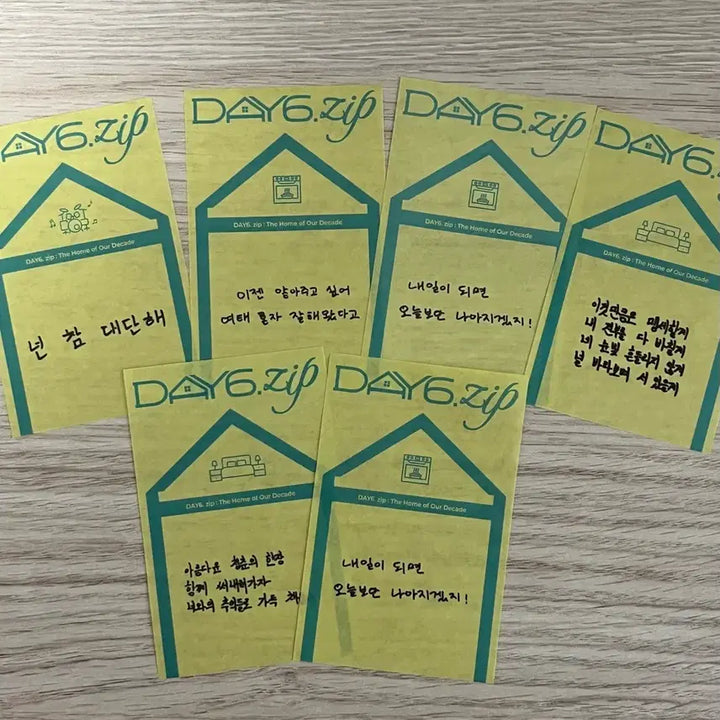 DAY6.zip
DAY6. zip : The Home of Our Decade
넌 참 대단해
DAY6.zip
DAY6. zip : The Home of Our Decade
이젠 알아주고 싶어
여태 혼자 잘해왔다고
DAY6.zip
DAY6. zip : The Home of Our Decade
내일이 되면
오늘보단 나아지겠지!
DAY6.
DAY6. zip : The Home of Our Decade
이것만큼은 맹세할게
내 전부를 다 바칠게
네 눈빛 흔들리지 않게
널 바라보며 서 있을게
DAY6.zip
DAY6. zip : The Home of Our Decade
아름다운 청춘의 한 장
함께 써내려가자
너와의 추억들로 가득 채
DAY6.zip
DAY6. zip : The Home of Our Decade
내일이 되면
오늘보단 나아지겠지!